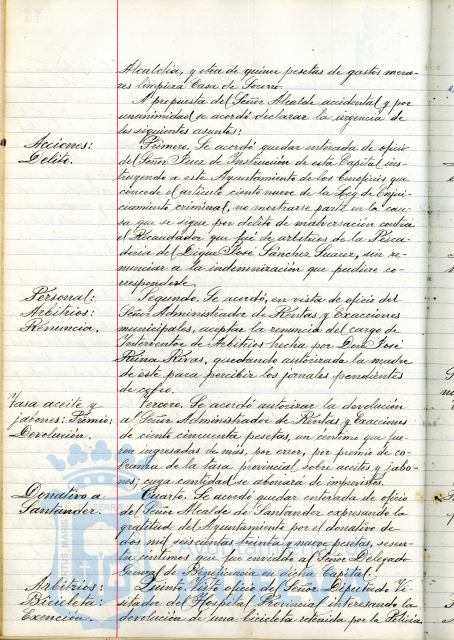 Alcaldía, y otra de quince pesetas de gastos meno-
res limpieza Casa de Socorro.
A propuesta del Señor Alcalde accidental y por
unanimidad se acordó declarar la urgencia de
los siguientes asuntos:
Acciones:
Delito.
Primero. Se acordó quedar enterada de oficio
del Señor Juez de Instrucción de esta Capital ins-
truyendo a este Ayuntamiento de los beneficios que
concede el artículo ciento nueve de la Ley de Enjui-
ciamiento criminal, no mostrarse parte en la cau-
sa que se sigue por delito de malversación contra
el Recaudador que fué de arbitrios de la Pesca-
dería del Dique José Sánchez Suarez, sin re-
nunciar a la indemnización que pudiere co-
rresponderle.
Personal:
Arbitrios:
Renuncia.
Segundo. Se acordó, en vista de oficio del
Señor Administrador de Rentas y Exacciones
municipales, aceptar la renuncia del cargo de
Interventor de Arbitrios hecha por Don José
Reina Rivas, quedando autorizada la madre
de éste para percibir los jornales pendientes
de cobro.
Tasa aceite y
jabones: Premio:
Devolución.
Tercero. Se acordó autorizar la devolución
al Señor Administrador de Rentas y Exacciones
de ciento cincuenta pesetas, un céntimo que fue-
ron ingresadas de más, por error, por premio de co-
branza de la tasa provincial sobre aceites y jabo-
nes; cuya cantidad se abonará de imprevistos.
Donativo a
Santander.
Cuarto. Se acordó quedar enterada de oficio
del Señor Alcalde de Santander expresando la
gratitud del Ayuntamiento por el donativo de
dos mil seiscientas treinta y nueve pesetas, sesen-
ta céntimos que fue enviado al Señor Delegado
General de Beneficencia en dicha Capital.
Arbitrios:
Bicicleta:
Exención.
Quinto. Visto oficio del Señor Diputado Vi-
sitador del Hospital Provincial interesando la
devolución de una bicicleta retenida por la Policía